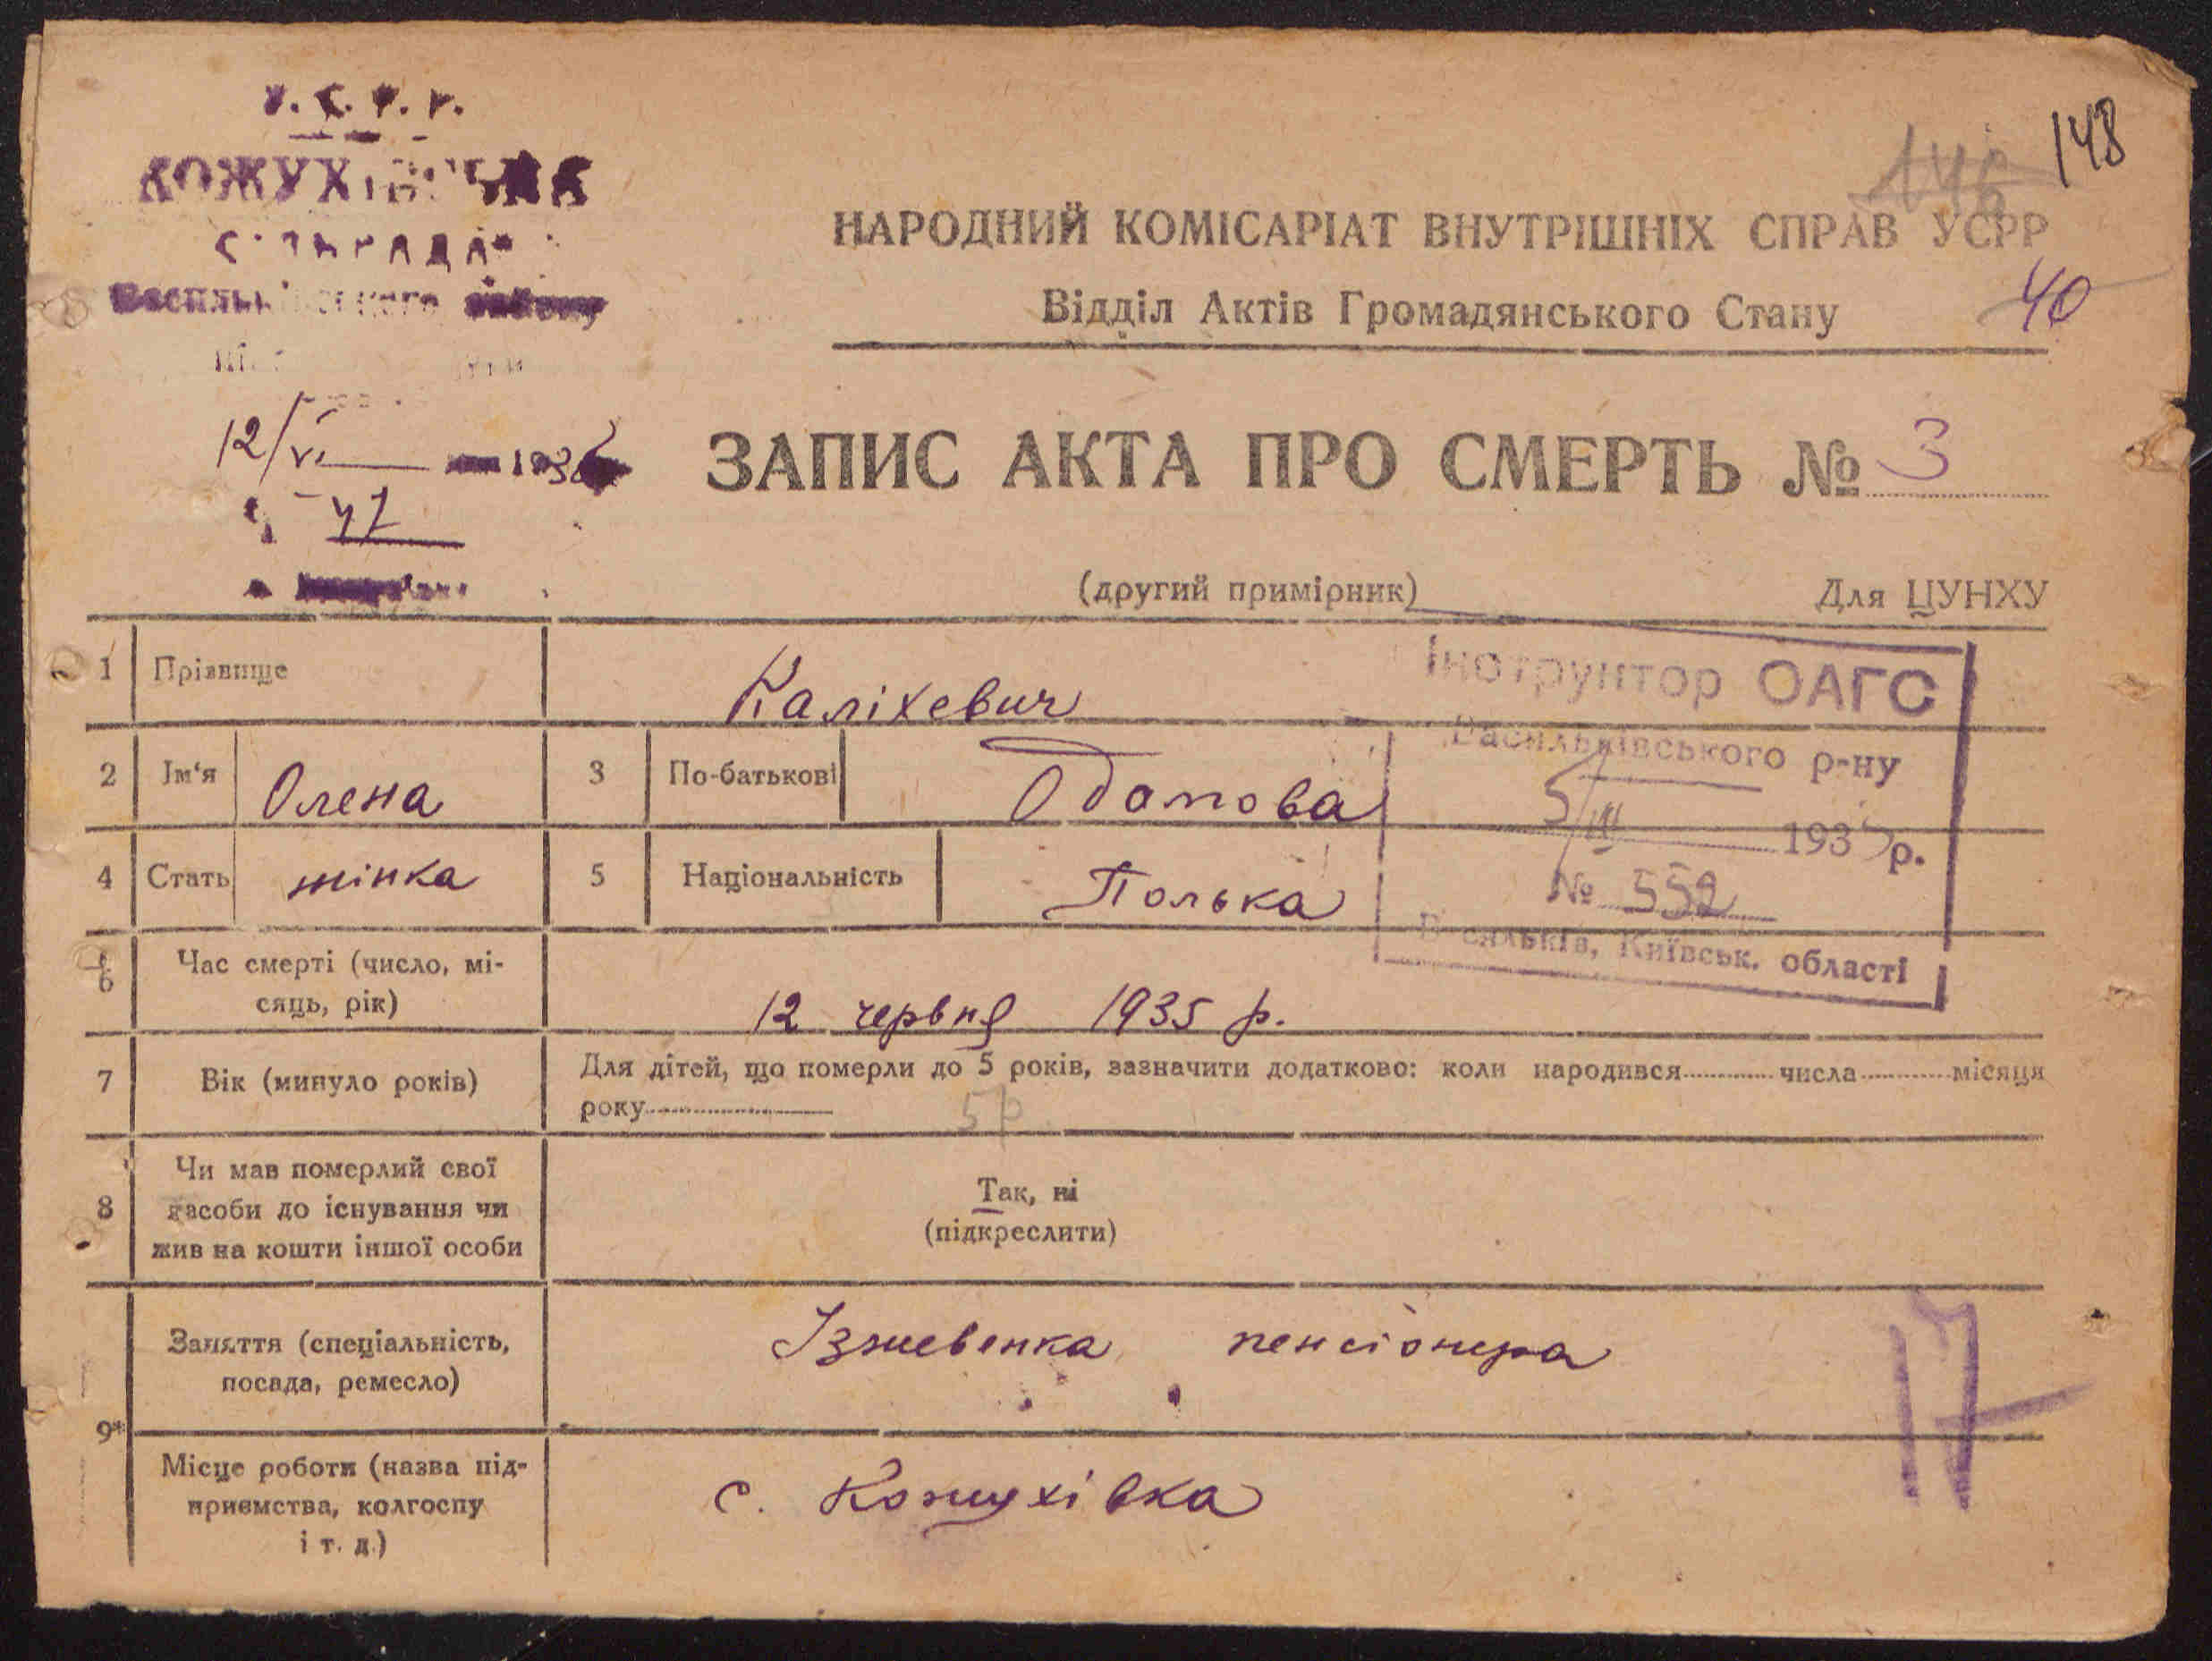 У. С. Р. Р.
КОЖУХІВСЬКА
СІЛЬРАДА
Васильківського району
148
146
НАРОДНИЙ КОМІСАРІАТ ВНУТРІШНІХ СПРАВ УСРР
Відділ Актів Громадянського Стану
40
12/VI 193
47
ЗАПИС АКТА ПРО СМЕРТЬ № 3
(другий примірник) Для ЦУНХУ
Інструктор ОАГС
Васильківського р-ну
5/III 1935 р.
№ 552
Васильків, Київськ. області
1 Прізвище Каліхевич
2 Ім'я Олена 3 По-батькові Одамова
4 Стать жінка 5 Національність Полька
6 Час смерті (число, мі-
сяць, рік) 12 червня 1935 р.
7 Вік (минуло років) Для дітей, що померли до 5 років, зазначити додатково: коли народився числа місяця
року 5р
8 Чи мав померлий свої
засоби до існування чи
жив на кошти іншої особи
Так, ні
(підкреслити)
9* Заняття (спеціальність,
посада, ремесло) Ізжевенка пенсіонера
Місце роботи (назва під-
приємства, колгоспу
і т. д.) с. Кожухівка
17